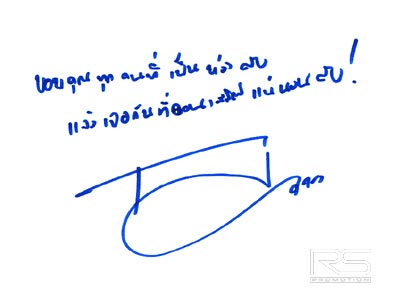 ขอบคุณทุกคนที่เป็นห่วงครับ
แล้วเจอกันที่คอนเสิร์ตแน่นอนครับ!
RS
PROMOTION